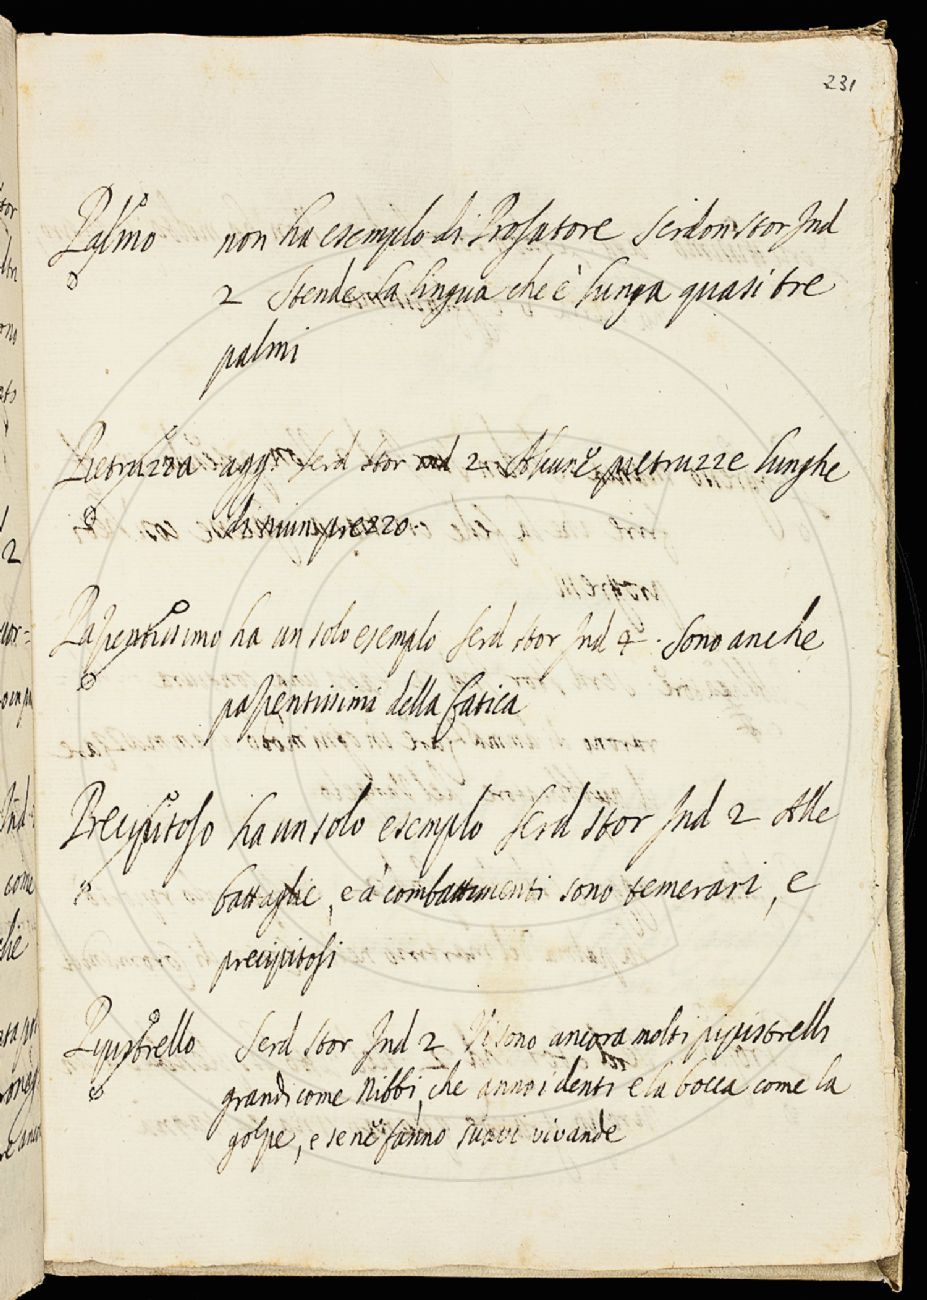 231
Palmo non ha esemplo di Prosatore Serdon Stor Ind
2 Stende la lingua che è lunga quasi tre
palmi
Pietruzza agg: Serd stor 2 pietruzze lunghe
di niun prezzo
Pazientissimo ha un solo esemplo Serd stor Ind 4. Sono anche
pazientissimi della fatica
Precipitoso ha un solo esemplo Serd Stor Ind 2 Alle
battaglie, e a' combattimenti sono temerari, e
precipitosi
Pipistrello Serd Stor Ind 2 Vi sono ancora molti pipistrelli
grandi come Nibbi, che anno i denti e la bocca come la
golpe, e se ne fanno suavi vivande